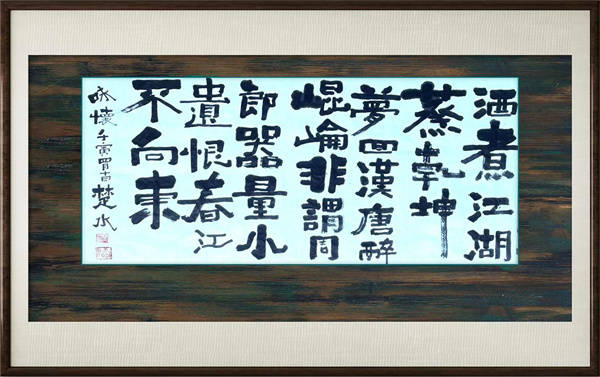 酒煮江湖
蒸乾坤
夢回漢唐醉
崐崘非謂周
郎器量小
遺恨春江
不向東
咏懷壬寅 楚水